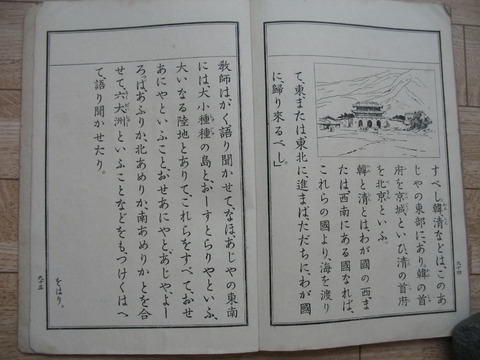 すべし。韓清などは、このあ
じやの東部にあり、韓の首
府を京城といひ、清の首府
を北京といふ。
韓と清とは、わが國の西ま
たは、西南にある國なれば、
これらの國より、海を渡り
て、東または、東北に、進まば、ただちに、わが國
に、歸り來るべし」
九十四
敎師は、かく語り聞かせて、なほ、あじやの東南
には、大小種種の島と、おーすとらりやといふ、
大いなる陸地とありて、これらをすべて、おせ
あにやといふことと、おせあにやと、あじや、よー
ろっぱ、あふりか、北あめりか、南あめりかとを合
せて、六大洲といふことなどをも、つけくはへ
て、語り聞かせたり。
をはり。
九十五